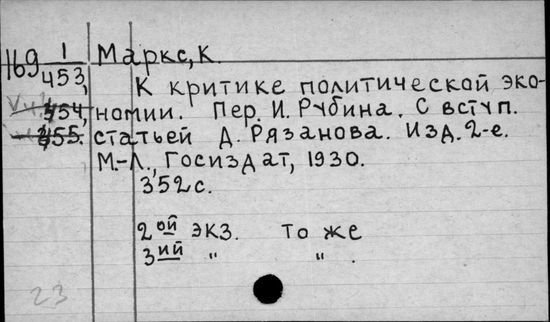 169 1 Маркс, К.
453,
К критике политической эко-
454, номии. Пер. И. Рубина. С вступ.
455. статьей Д. Рязанова. Изд. 2-е.
М.-Л., Госиздат, 1930.
352 с.
2ой экз. То же
3ий " " .
23